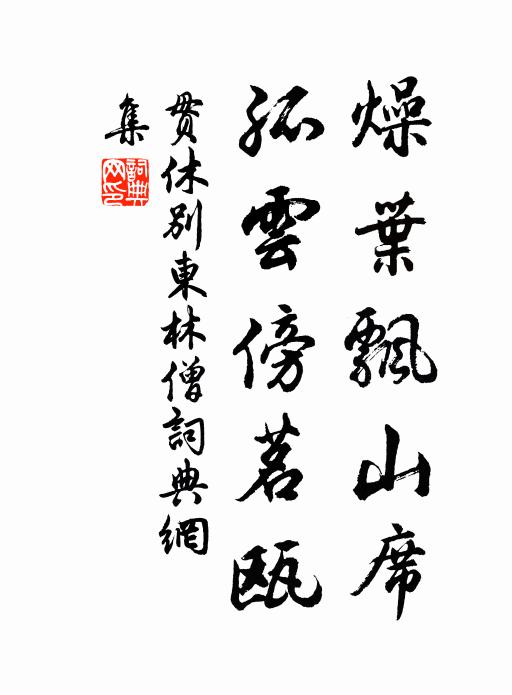 燥葉飄山席
孤雲傍茗瓯
贯休別東林僧詞典網
集
詞典网印